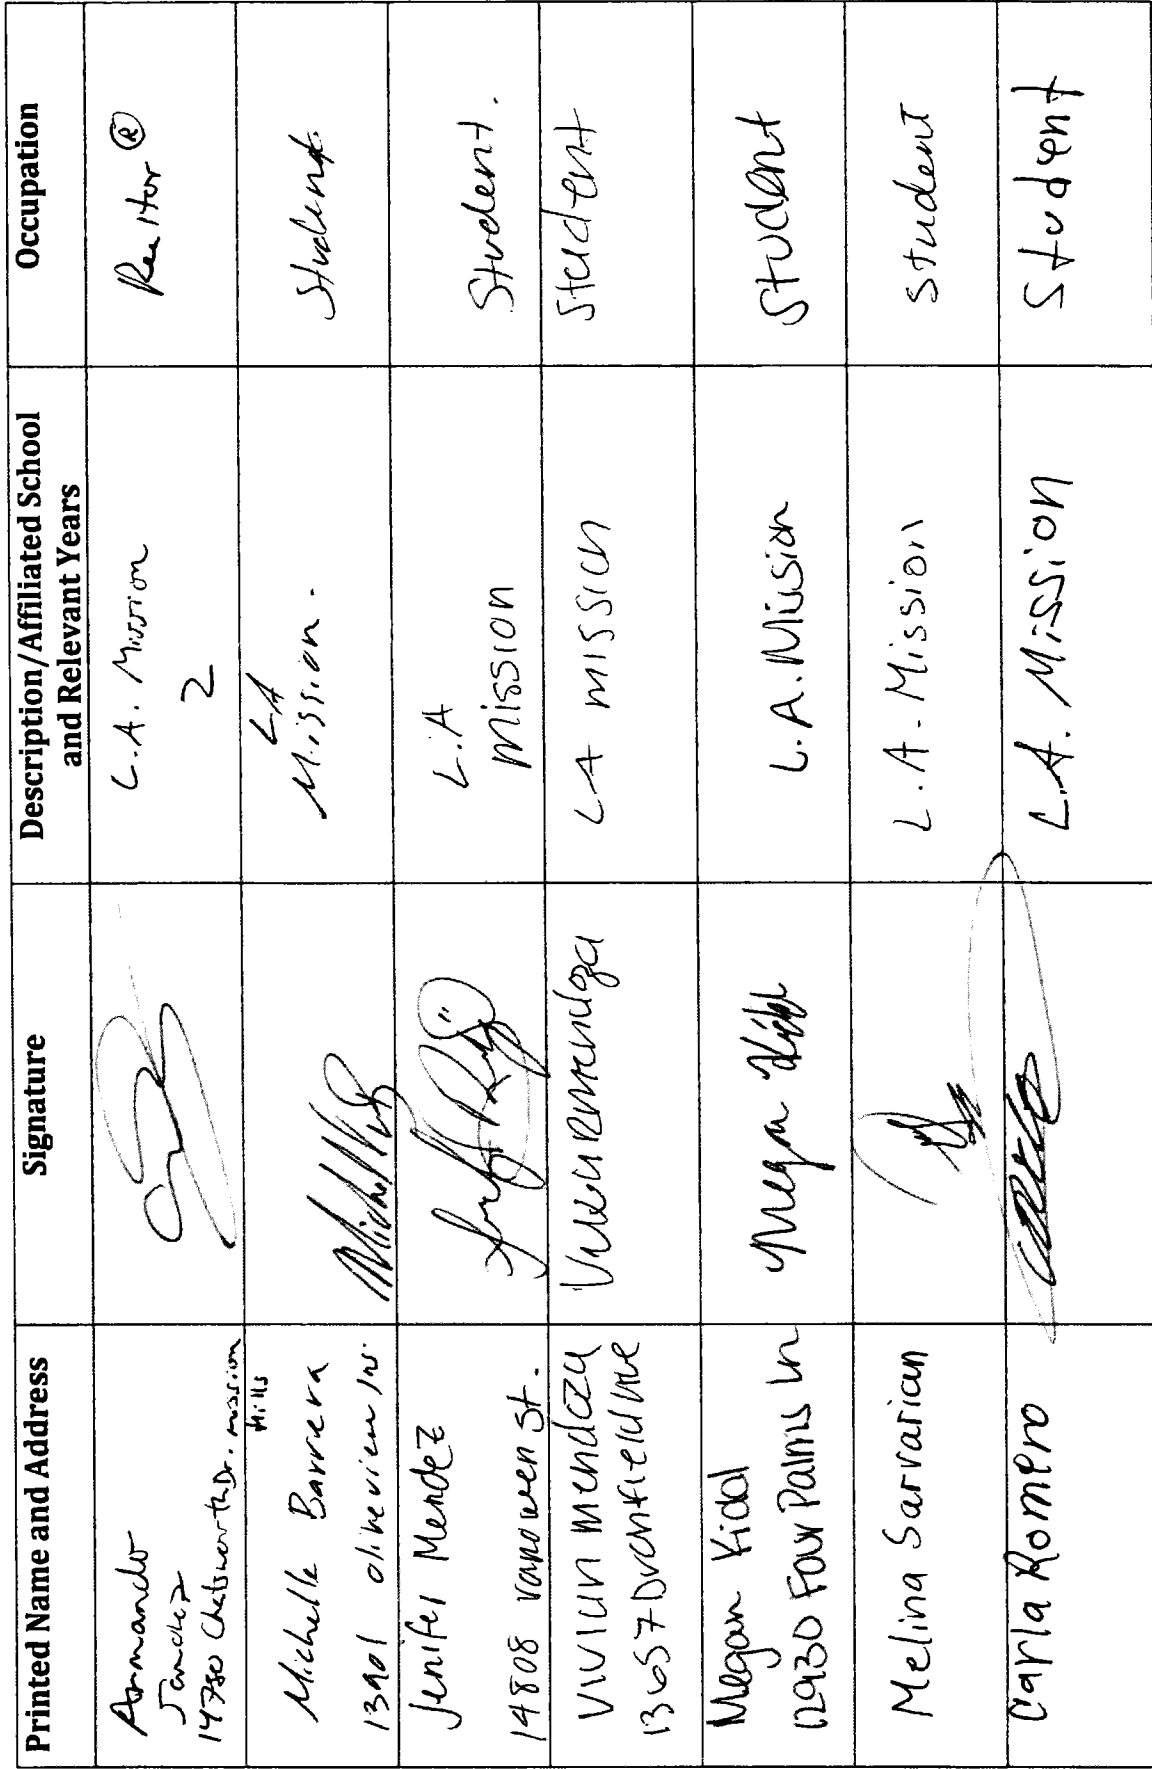 Printed Name and Address
Signature
Description/Affiliated School
and Relevant Years
Occupation
Armando
Sanchez
14780 Chatsworth Dr. mission
Hills
L.A. Mission
2
Realtor ®
Michelle Barrera
13901 oliveview ln.
LA
Mission.
Student.
Jenifer Mendez
14808 vanowen st.
L.A
Mission
Student.
Vivian mendoza
13657 Dronfield Ave
LA mission
Student
Megan Kidd
12930 Four Palms Ln
Megan Kidd
L.A. Mission
Student
Melina Sarvarian
L.A. Mission
student
Carla Romero
L.A. Mission
Student